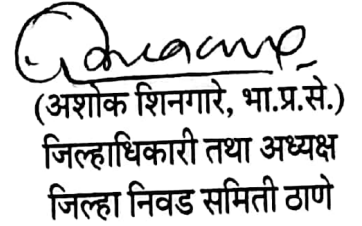 (अशोक शिनगारे, भा.प्र.से.)
जिल्हाधिकारी तथा अध्यक्ष
जिल्हा निवड समिती ठाणे